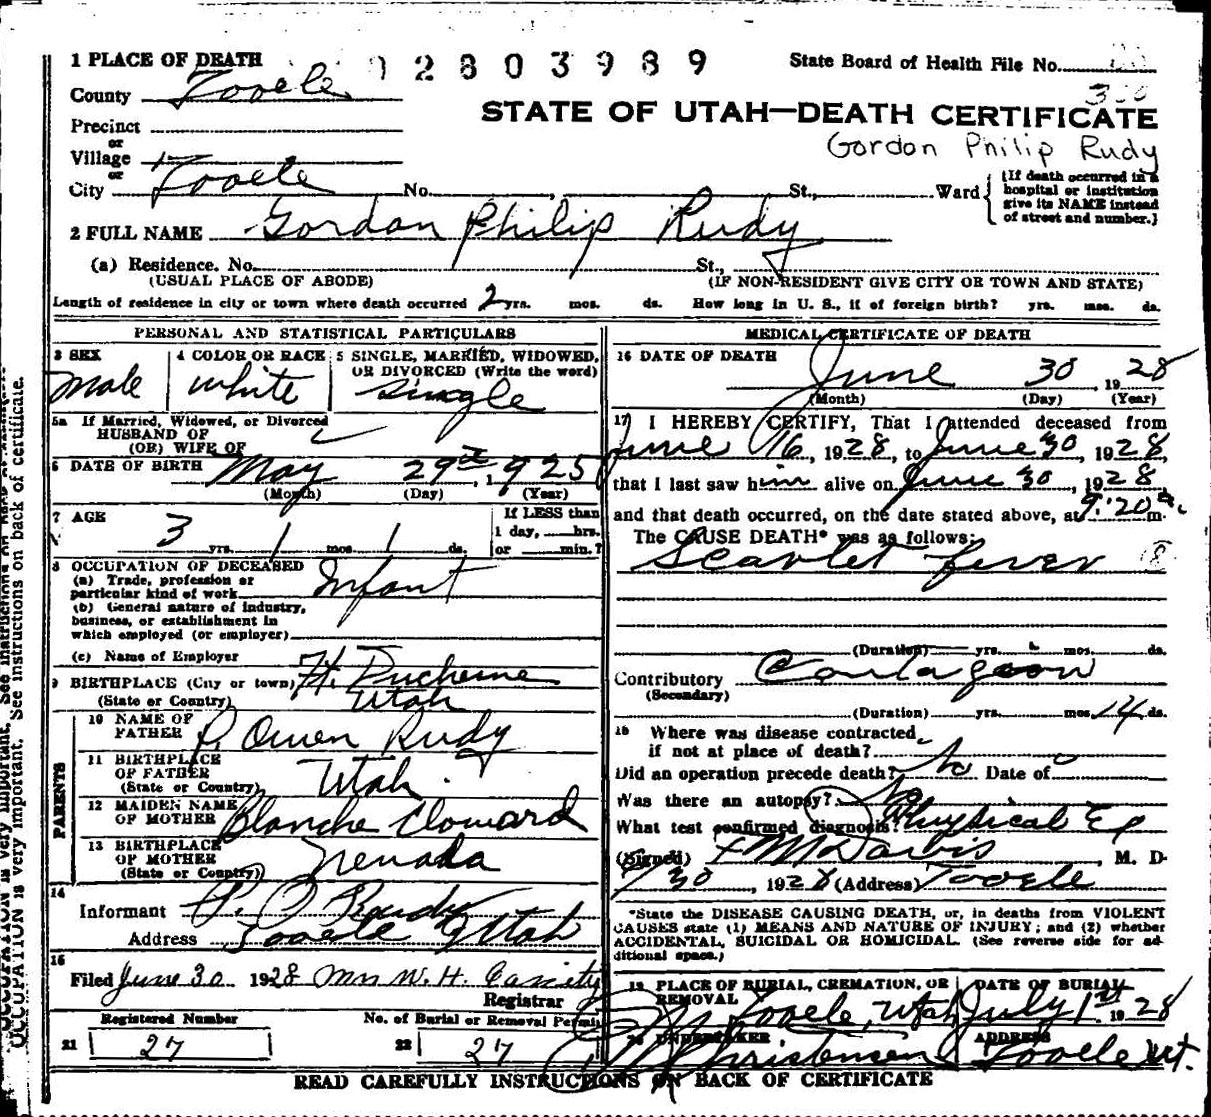 1 PLACE OF DEATH
02803989
State Board of Health File No.
County Tooele
300
STATE OF UTAH—DEATH CERTIFICATE
Precinct
or
Village
Gordon Philip Rudy
or
City Tooele No. , St., Ward
{If death occurred in a hospital or institution give its NAME instead of street and number.}
2 FULL NAME Gordon Philip Rudy
(a) Residence. No. St.,
(USUAL PLACE OF ABODE) (IF NON-RESIDENT GIVE CITY OR TOWN AND STATE)
Length of residence in city or town where death occurred 2 yrs. mos. ds. How long in U. S., if of foreign birth? yrs. mos. ds.
PERSONAL AND STATISTICAL PARTICULARS
3 SEX Male
4 COLOR OR RACE White
5 SINGLE, MARRIED, WIDOWED, OR DIVORCED (Write the word) Single
5a If Married, Widowed, or Divorced
HUSBAND OF
(OR) WIFE OF
6 DATE OF BIRTH May 29th, 1925
(Month) (Day) (Year)
7 AGE 3 yrs. 1 mos. 1 ds.
If LESS than
1 day, hrs.
or min.?
8 OCCUPATION OF DECEASED
(a) Trade, profession or
particular kind of work Infant
(b) General nature of industry,
business, or establishment in
which employed (or employer)
(c) Name of Employer
9 BIRTHPLACE (City or town) Ft. Duchesne
(State or Country) Utah
PARENTS
10 NAME OF
FATHER P. Owen Rudy
11 BIRTHPLACE
OF FATHER
(State or Country) Utah
12 MAIDEN NAME
OF MOTHER Blanche Cloward
13 BIRTHPLACE
OF MOTHER
(State or Country) Nevada
14
Informant P. O. Rudy
Address Tooele Utah
15
Filed June 30 1928 Mrs W. H. Cassity
Registrar
Registered Number No. of Burial or Removal Permit
21 27 22 27
MEDICAL CERTIFICATE OF DEATH
16 DATE OF DEATH
June 30 1928
(Month) (Day) (Year)
17 I HEREBY CERTIFY, That I attended deceased from
June 16, 1928, to June 30, 1928,
that I last saw him alive on June 30, 1928,
and that death occurred, on the date stated above, at 9:20 a. m.
The CAUSE DEATH* was as follows:
Scarlet fever 8
(Duration) yrs. mos. ds.
Contributory Contagion
(Secondary)
(Duration) yrs. mos. 14 ds.
18 Where was disease contracted
if not at place of death?
Did an operation precede death? No Date of
Was there an autopsy? No
What test confirmed diagnosis? Physical Ex
(Signed) F M Davis, M. D.
6/30, 1928 (Address) Tooele
*State the DISEASE CAUSING DEATH, or, in deaths from VIOLENT
CAUSES state (1) MEANS AND NATURE OF INJURY; and (2) whether
ACCIDENTAL, SUICIDAL OR HOMICIDAL. (See reverse side for ad-
ditional space.)
19 PLACE OF BURIAL, CREMATION, OR REMOVAL Tooele, Utah
DATE OF BURIAL July 1st 1928
20 UNDERTAKER Christensen
ADDRESS Tooele Ut.
READ CAREFULLY INSTRUCTIONS ON BACK OF CERTIFICATE
OCCUPATION is very important. See instructions on back of certificate.